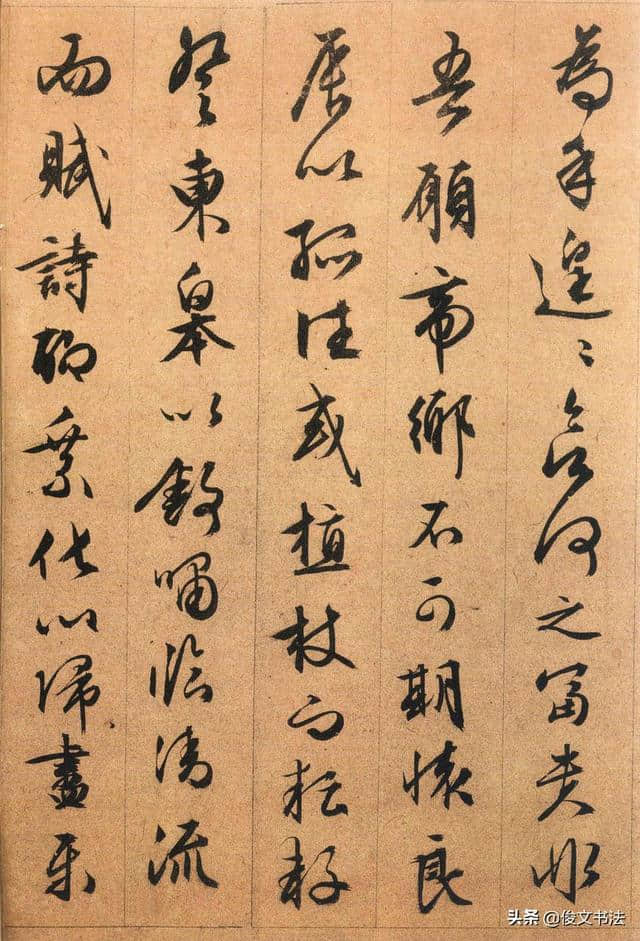 為乎遑〻欲何之富貴非
吾願帝鄉不可期懷良
辰以孤往或植杖而耘耔
登東皋以舒嘯臨清流
而賦詩聊乘化以歸盡樂
头条 @俊文书法